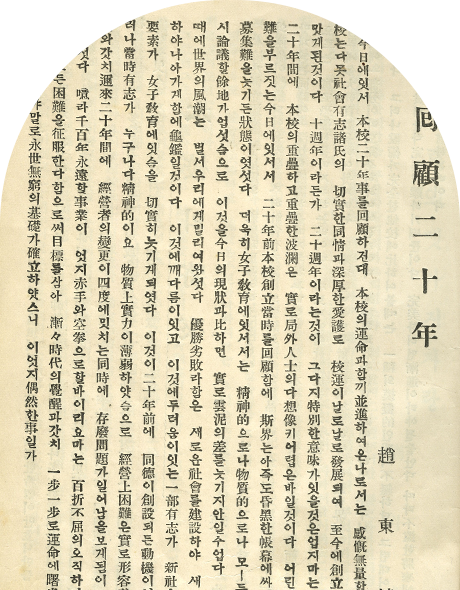 回顧二十年
趙東
今日에잇서 本校二十年事를回顧하건대 本校의運命과함끠並進하여온나로서는 感慨無量함
校는다못社會有志諸氏의 切實한同情과深厚한愛護로 校運이날로날로發展되여 至今에創立
맛게된것이다 十週年이라든가 二十週年이라는것이 그다지特別한意味가잇을것은업지마는
二十年間에 本校의重疊하고重疊한波瀾은 實로局外人士의다想像키어렵은바일것이다 어린
難을부르짓는今日에잇서서 二十年前本校創立當時를回顧함에 斯界는아즉도昏黑한帳幕에싸
募集難을늣기든狀態이엿섯다 더욱히女子敎育에잇서서는 精神的으로나物質的으로나 모ー든
시論議할餘地가업섯슴으로 이것을今日의現狀과比하면 實로雲泥의差를늣기지안일수업다
때에世界의風潮는 벌서우리에게밀리여왓섯다 優勝劣敗라함은 새로운社會를建設하야 새
하야나아가게함에龜鑑일것이다 이것에깨다름이잇고 이것에두려움이잇는一部有志가 新社
要素가 女子敎育에잇슴을 切實히늣기게되엿다 이것이二十年前에 同德이創設되든動機이
러나當時有志가 누구나다精神的이요 物質上實力이薄弱하얏슴으로 經營上困難은實로形容
와갓치邇來二十年間에 經營者의變更이四度에밋치는同時에 存廢問題가일어남을보게됨이
섯다 噫라千百年永遠할事業이 엇지赤手와空拳으로할바이리요마는 百折不屈의오직하
든困難을征服한다함으로써目標를삼아 漸々時代의覺醒과갓치 一步一步로運命에曙
야말로永世無窮의基礎가確立하얏스니 이엇지偶然한事일가